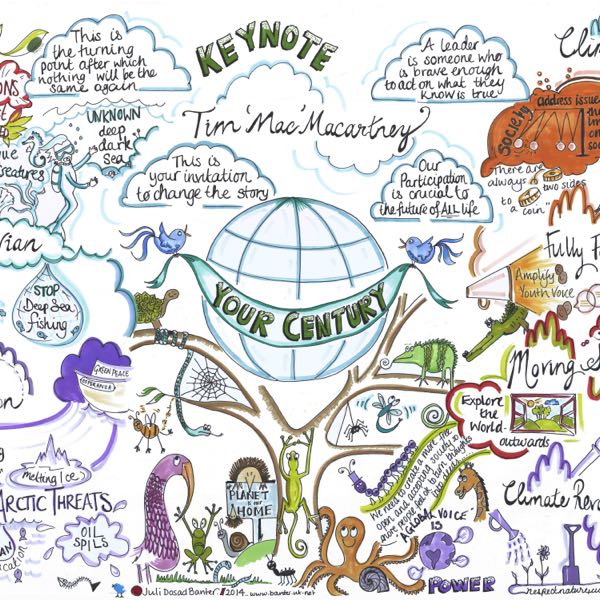 KEYNOTE
Tim 'Mac' Macartney
This is
the turning
point after which
nothing will be the
same again
A leader
is someone who
is brave enough
to act on what they
know is true
This is
your invitation
to change the story
Our
Participation
is crucial to
the future of ALL life
YOUR CENTURY
UNKNOWN
deep
dark
sea
Creatures
STOP
Deep Sea
fishing
GREEN PEACE
ESPERANZA
Melting Ice
ARCTIC THREATS
OIL
SPILS
HELP
PLANET
is our
HOME
Society
address issues
There are
always two sides
to a coin
Amplify
Youth Voice
Moving
Explore
the
World-
outwards
We need to create a more
open and accepting society
A GLOBAL VOICE
IS
POWER
Climate
Juli Dosad Banter // 2014 www.banter-uk.net